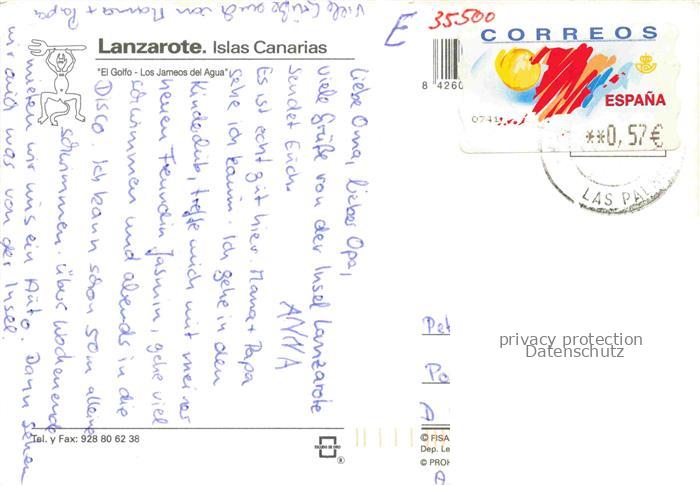 Lanzarote. Islas Canarias
"El Golfo - Los Jameos del Agua"
Liebe Oma, lieber Opa,
viele Grüße von der Insel Lanzarote
sendet Euch
ANNA
Es ist echt gut hier. Mama + Papa
sehe ich kaum. Ich gehe in den
Kinderclub, treffe mich mit meiner
neuen Freundin Jasmin, gehe viel
schwimmen und abends in die
Disco. Ich kann schon 50m alleine
schwimmen. Übers Wochenende
mieten wir uns ein Auto. Dann sehen
wir auch was von der Insel.
Viele Grüße auch von Mama + Papa
Tel. y Fax: 928 80 62 38
ESCUDO DE ORO
®
E 35500
8 4260
CORREOS
ESPAÑA
0741
**0,57€
LAS PAL
Pet
Po
A
privacy protection
Datenschutz
© FISA
Dep. Le
© PROH